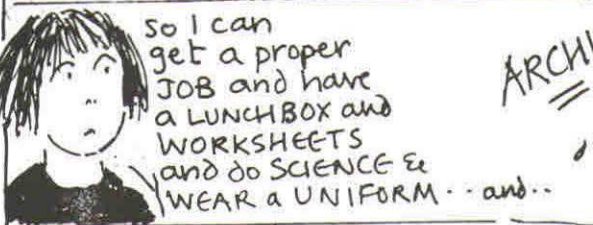 so I can
get a proper
JOB and have
a LUNCHBOX and
WORKSHEETS
and do SCIENCE &
WEAR a UNIFORM . . and . .